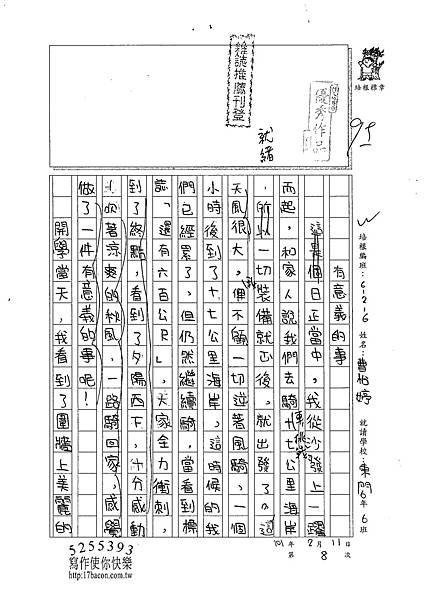 雜誌推薦刊登
優秀作品
培根標章
95
就緒
有意義的事
這是個日正當中，我從沙發上一躍
而起，和家人說我們去騎十七公里海岸
，所以一切裝備就後。就出發了。這
天風很大，但不顧一切逆著風騎，一個
小時後到了十七公里海岸。這時候的我
們已經累了，但仍然繼續騎，當看到標
誌「還有六百公尺」，大家全力衝刺，
到了終點，看到了夕陽西下，十分感動
，吹著涼爽的秋風，一路騎回家，感覺
做了一件有意義的事呢！
開學當天，我看到了圍牆上美麗的
培根編班：6-2-6 姓名：曹怡婷 就讀學校：東門6年6班
101年2月11日
第8次
5255393
寫作使你快樂
http://17bacon.com.tw/